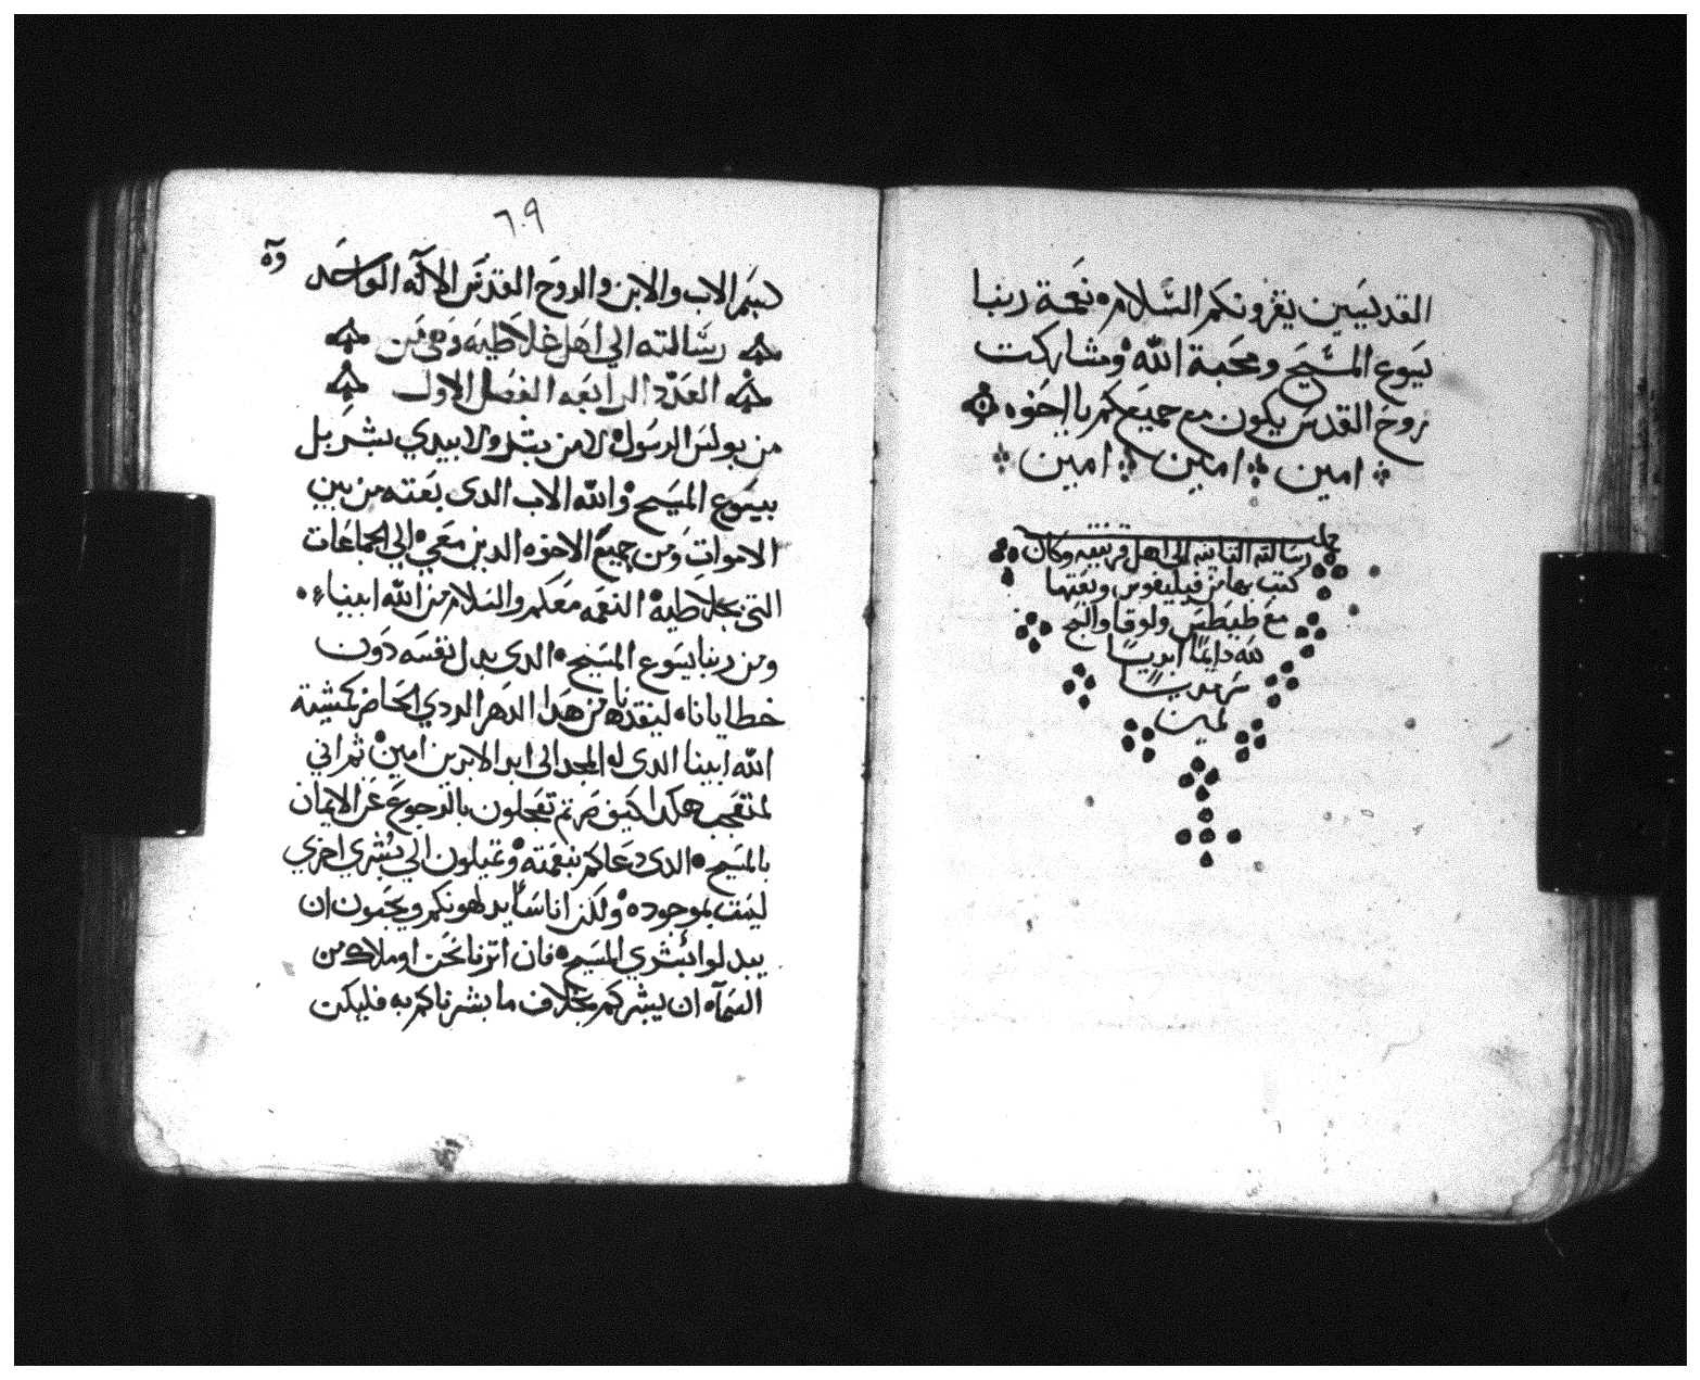 القديسين يقرونكم السلام ه نعمة ربنا
يسوع المسيح ومحبة الله ومشاركت
روح القدس يكون مع جميعكم يا اخوه
امين امين امين
رسالته التانيه الى اهل قرنتيه وكان
كتب بها من فيليفوس وبعتها
مع طيطس ولوقا والمجد
لله دايما ابديا
سرمديا
امين
٦٠٩
بسم الاب والابن والروح القدس الاله الواحد
رسالته الي اهل غلاطيه وهي من
العدد الرابعه الفصل الاول
من بولس الرسول لا من بشر ولا بيدي بشر بل
بيسوع المسيح والله الاب الدى بعته من بين
الاموات ومن جميع الاخوه الدين معي الي الجماعات
التي بغلاطيه النعمه معكم والسلام من الله ابينا
ومن ربنا يسوع المسيح الدى بدل نفسه دون
خطايانا لينقدنا من هدا الدهر الردي الحاضر كمشيته
الله ابينا الدى له المجد الى ابد الابدين امين ثم اني
لمتعجب هكدا كيف صرتم تعجلون بالرجوع عن الايمان
بالمسيح الدى دعاكم بنعمته وتميلون الي بشري اخري
ليست بموجوده ولكن اناسا يدلهونكم ويحبون ان
يبدلوا بشري المسيح فان اترنا نحن او ملاك من
السمآ ان يبشركم بخلاف ما بشرناكم به فليكن